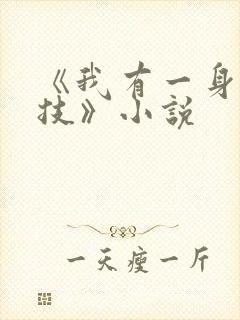 《我有一身
技》小説
一天瘦一斤